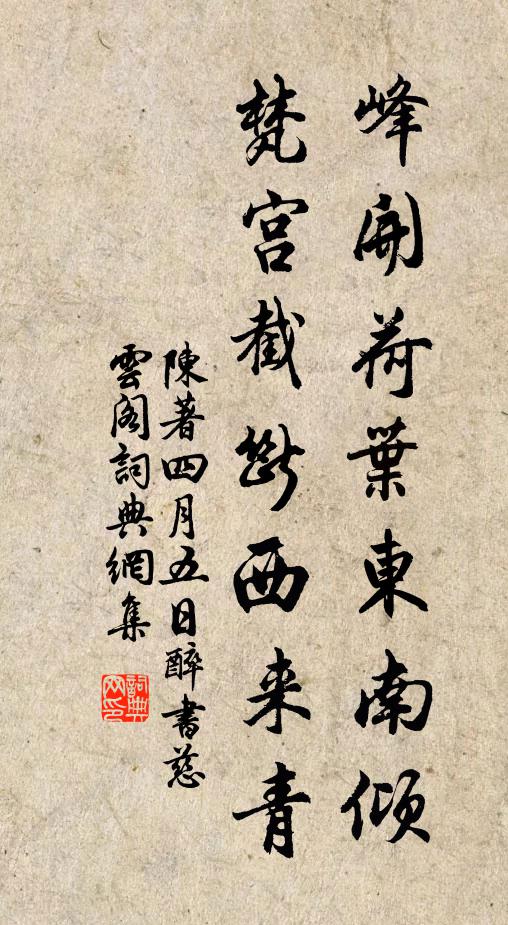 峰開荷葉東南傾
梵宮截斷西来青
陳著四月五日醉書慈
雲閣詞典網集
詞典
网印